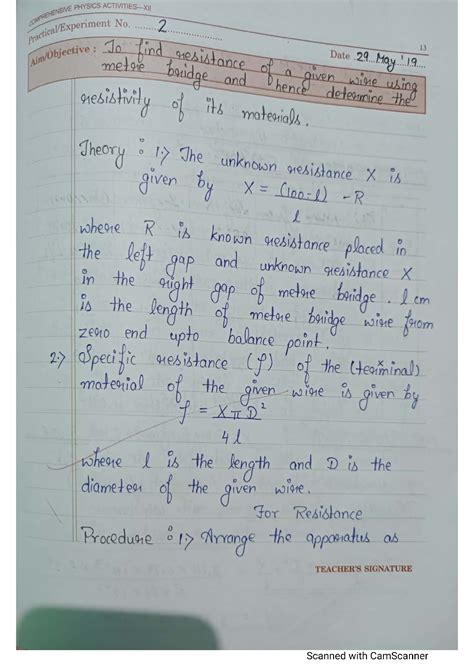 COMPREHENSIVE PHYSICS ACTIVITIES—XII
Practical/Experiment No. ........2........
13
Date ..29..May..'19....
Aim/Objective : To find resistance of a given wire using
metre bridge and hence determine the
resistivity of its materials.
Theory : 1.> The unknown resistance X is
given by X = (100-l) - R
l
where R is known resistance placed in
the left gap and unknown resistance X
in the right gap of metre bridge. l cm
is the length of metre bridge wire from
zero end upto balance point.
2.> Specific resistance (ρ) of the (terminal)
material of the given wire is given by
ρ = XπD²
4l
where l is the length and D is the
diameter of the given wire.
For Resistance
Procedure : 1.> Arrange the apparatus as
TEACHER'S SIGNATURE
Scanned with CamScanner